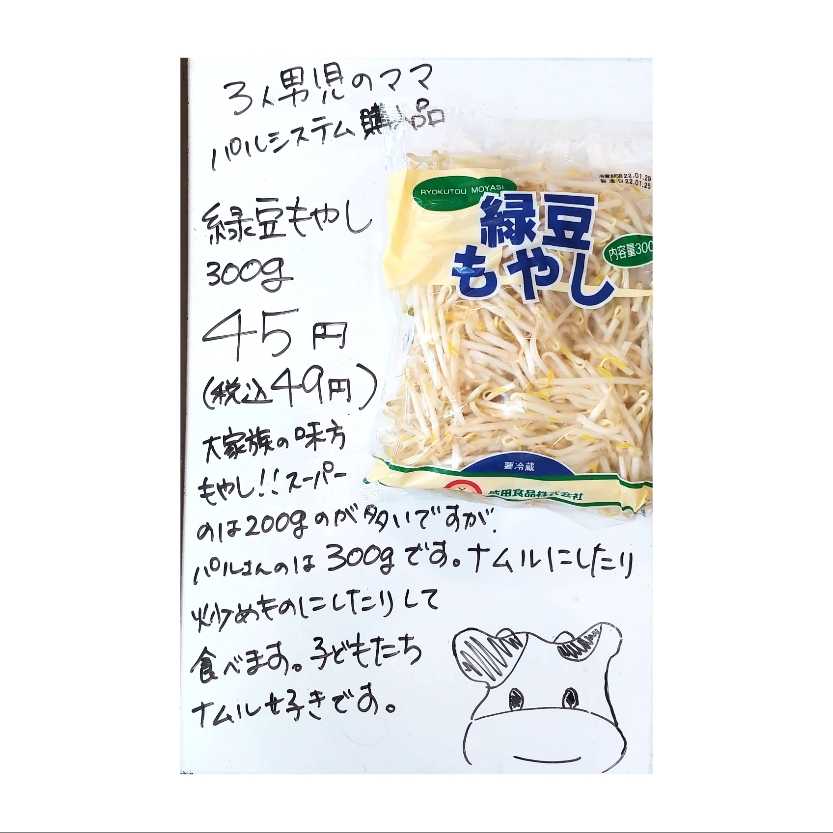 3人男児のママ
パルシステム購入品
緑豆もやし
300g
45円
(税込49円)
大家族の味方
もやし!!スーパー
のは200gのが多いですが、
パルさんのは300gです。ナムルにしたり
炒めものにしたりして
食べます。子どもたち
ナムル好きです。
RYOKUTOU MOYASI
緑豆
もやし
内容量300
22.01.25
要冷蔵
成田食品株式会社